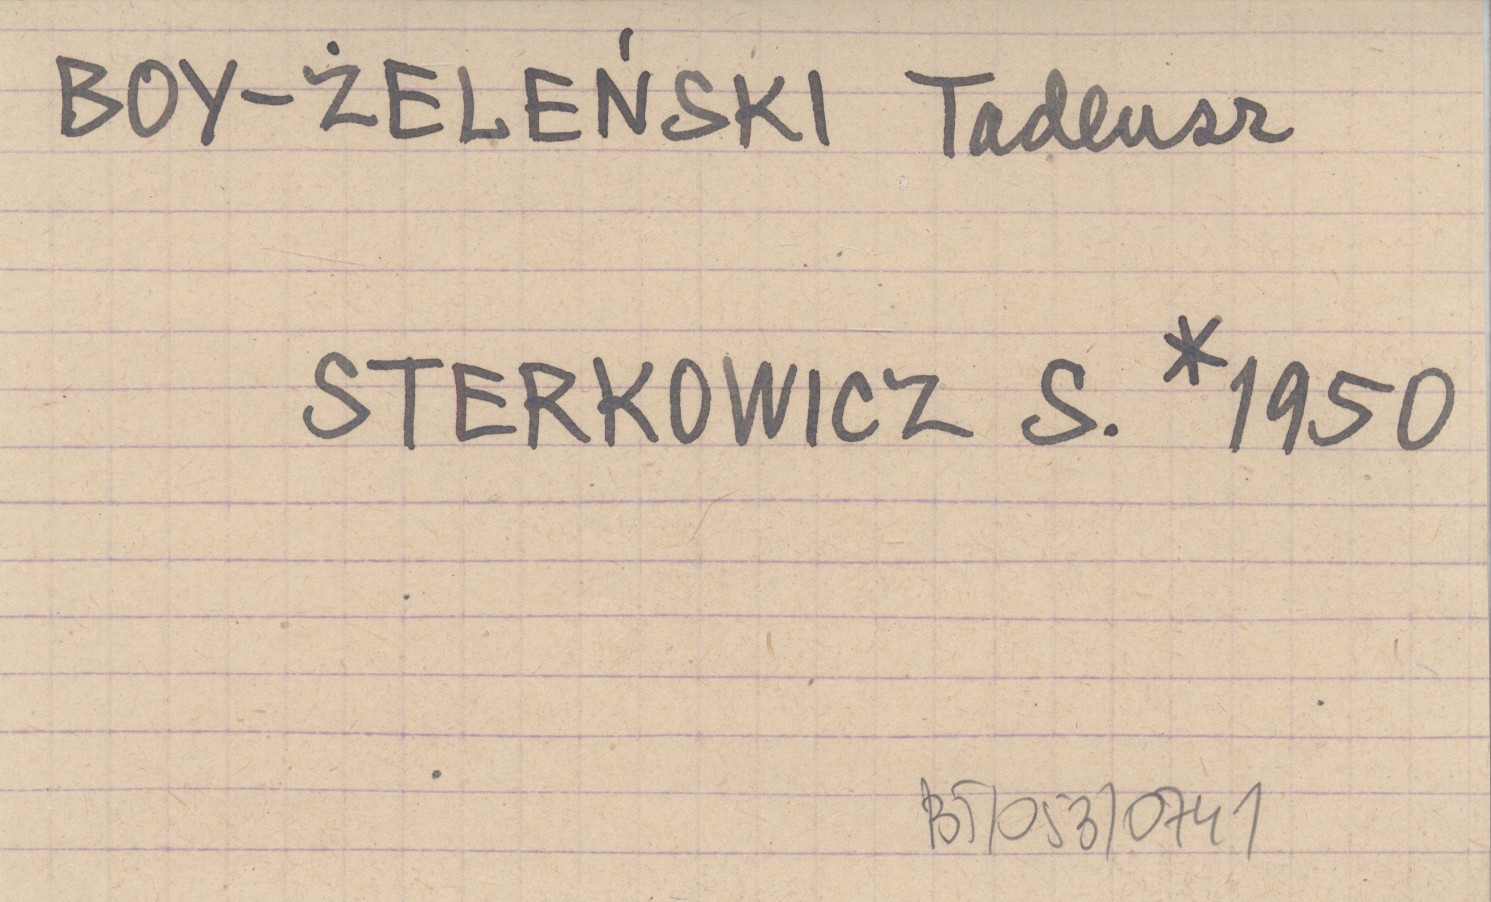 BOY-ŻELEŃSKI Tadeusz
STERKOWICZ S. *1950
BŚ/053/0741